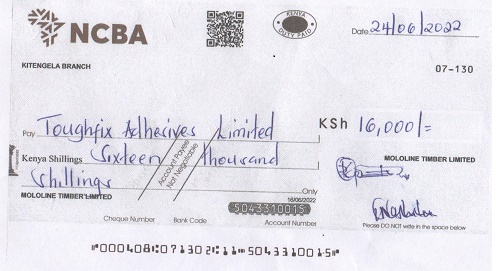 NCBA
KENYA
DUTY PAID
Date 24/06/2022
KITENGELA BRANCH
07-130
Pay Toughfix Adhecives Limited KSh 16,000/=
Kenya Shillings Sixteen thousand
shillings Only
Account Payee
Not Negotiable
MOLOLINE TIMBER LIMITED
MOLOLINE TIMBER LIMITED
16/06/2022
5043310015
Cheque Number Bank Code Account Number
Please DO NOT write in the space below
⑈000408⑆071302⑆11⑈5043310015⑈